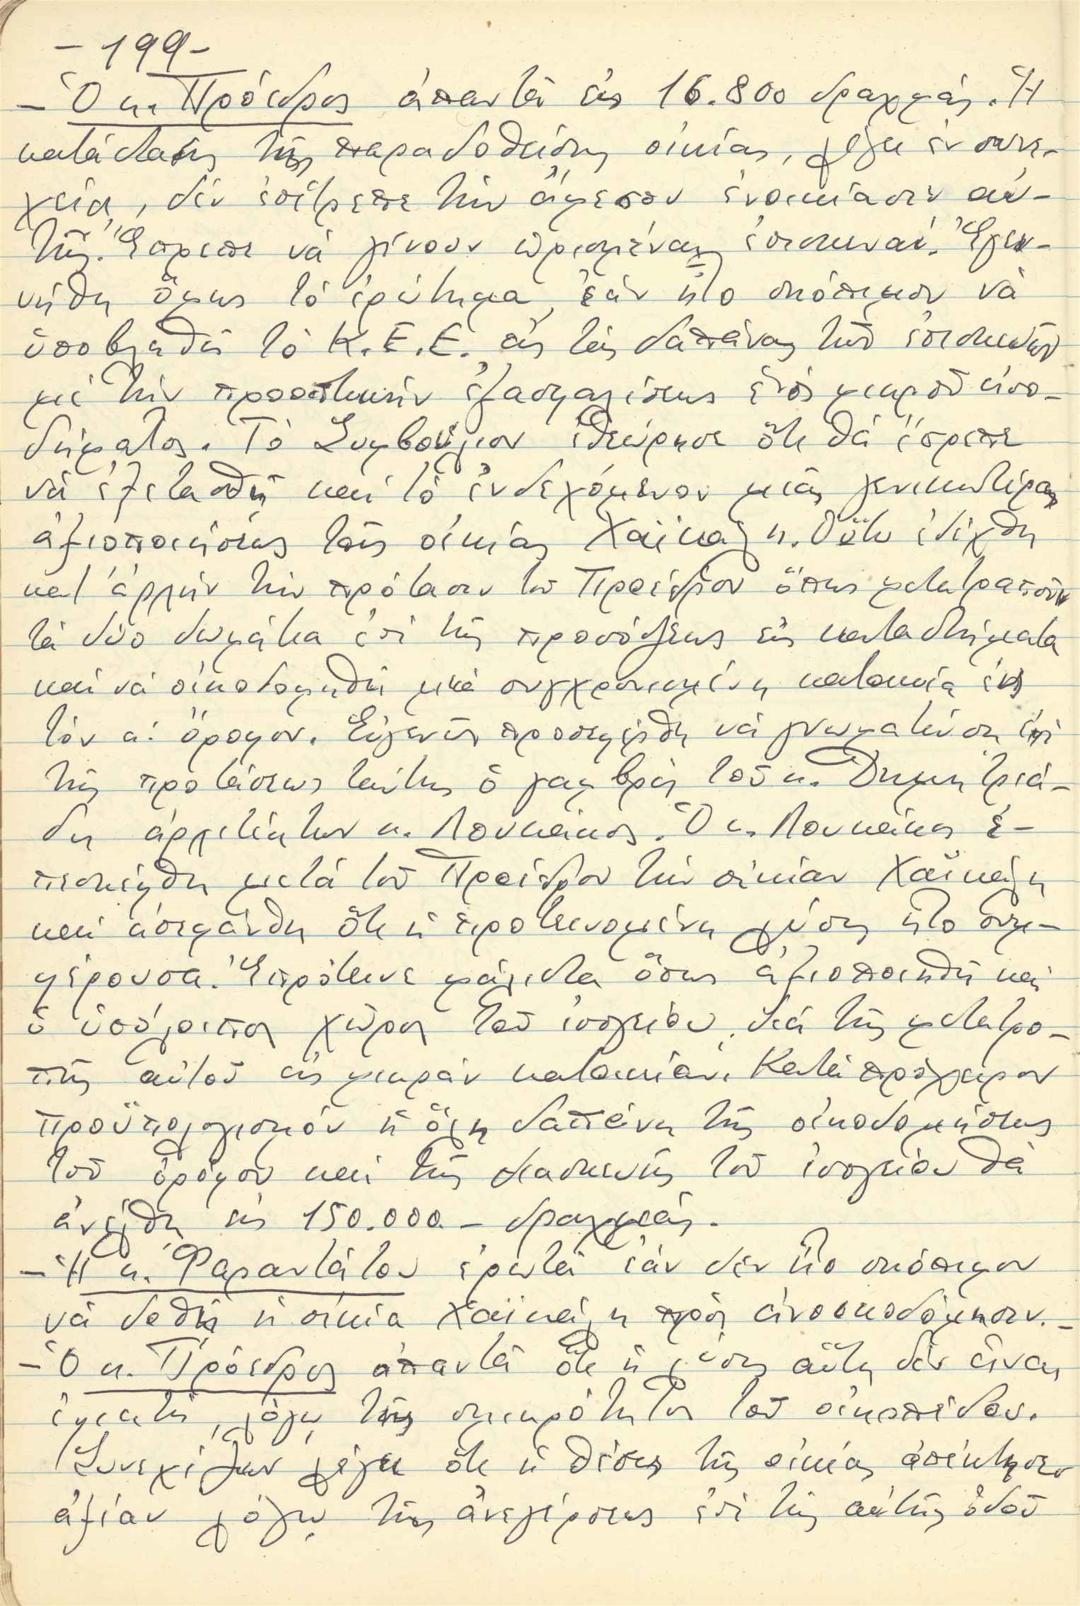 -199-
- Ὁ κ. Πρόεδρος ἀπαντᾷ εἰς 16.800 δραχμάς. Ἡ
κατάστασις τῆς παραδοθείσης οἰκίας, λέγει ἐν συνε-
χείᾳ, δέν ἐπέτρεπε τήν ἄμεσον ἐνοικίασιν αὐ-
τῆς. Ἔπρεπε νά γίνουν ὡρισμέναι ἐπισκευαί. Ἐγεν-
νήθη ὅμως τό ἐρώτημα, ἐάν ἦτο σκόπιμον νά
ὑποβληθῆ τό Κ.Ε.Ε. εἰς τάς δαπάνας τῶν ἐπισκευῶν
μέ τήν προοπτικήν ἐξασφαλίσεως ἑνός μικροῦ εἰσο-
δήματος. Τό Συμβούλιον ἐθεώρησε ὅτι θά ἔπρεπε
νά ἐξετασθῆ καί τό ἐνδεχόμενον μιᾶς γενικωτέρας
ἀξιοποιήσεως τῆς οἰκίας Χαϊκάλη. Οὕτω ἐδέχθη
κατ' ἀρχήν τήν πρότασιν τοῦ Προέδρου ὅπως μετατραποῦν
τά δύο δωμάτια ἐπί τῆς προσόψεως εἰς καταστήματα
καί νά οἰκοδομηθῆ μιά συγχρονισμένη κατοικία εἰς
τόν α! ὄροφον. Εὐγενῶς προσεφέρθη νά γνωματεύση ἐπί
τῆς προτάσεως ταύτης ὁ γαμβρός τοῦ κ. Δημητριά-
δη ἀρχιτέκτων κ. Λουκάκος. Ὁ κ. Λουκάκος ἐ-
πεσκέφθη μετά τοῦ Προέδρου τήν οἰκίαν Χαϊκάλη
καί ἀπεφάνθη ὅτι ἡ προτεινομένη λύσις ἦτο συμ-
φέρουσα. Ἐπρότεινε μάλιστα ὅπως ἀξιοποιηθῆ καί
ὁ ὑπόλοιπος χῶρος τοῦ ἰσογείου διά τῆς μετατρο-
πῆς αὐτοῦ εἰς μικράν κατοικίαν. Κατά πρόχειρον
προϋπολογισμόν ἡ ὅλη δαπάνη τῆς οἰκοδομήσεως
τοῦ ὀρόφου καί τῆς διασκευῆς τοῦ ἰσογείου θά
ἀνέλθη εἰς 150.000 - δραχμάς.
- Ἡ κ. Φαραντάτου ἐρωτᾷ ἐάν δέν ἦτο σκόπιμον
νά δοθῆ ἡ οἰκία Χαϊκάλη πρός ἀνοικοδόμησιν. -
- Ὁ κ. Πρόεδρος ἀπαντᾷ ὅτι ἡ λύσις αὕτη δέν εἶναι
ἐφικτή, λόγῳ τῆς σμικρότητος τοῦ οἰκοπέδου.
Συνεχίζων λέγει ὅτι ἡ θέσις τῆς οἰκίας ἀπέκτησεν
ἀξίαν λόγῳ τῆς ἀνεγέρσεως ἐπί τῆς αὐτῆς ὁδοῦ